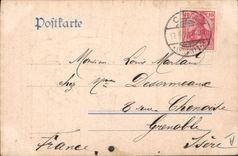 Postkarte
Monsieur Louis Mortand
chez Mme Desormeaux
8 rue Chenoise
Grenoble
France Isère